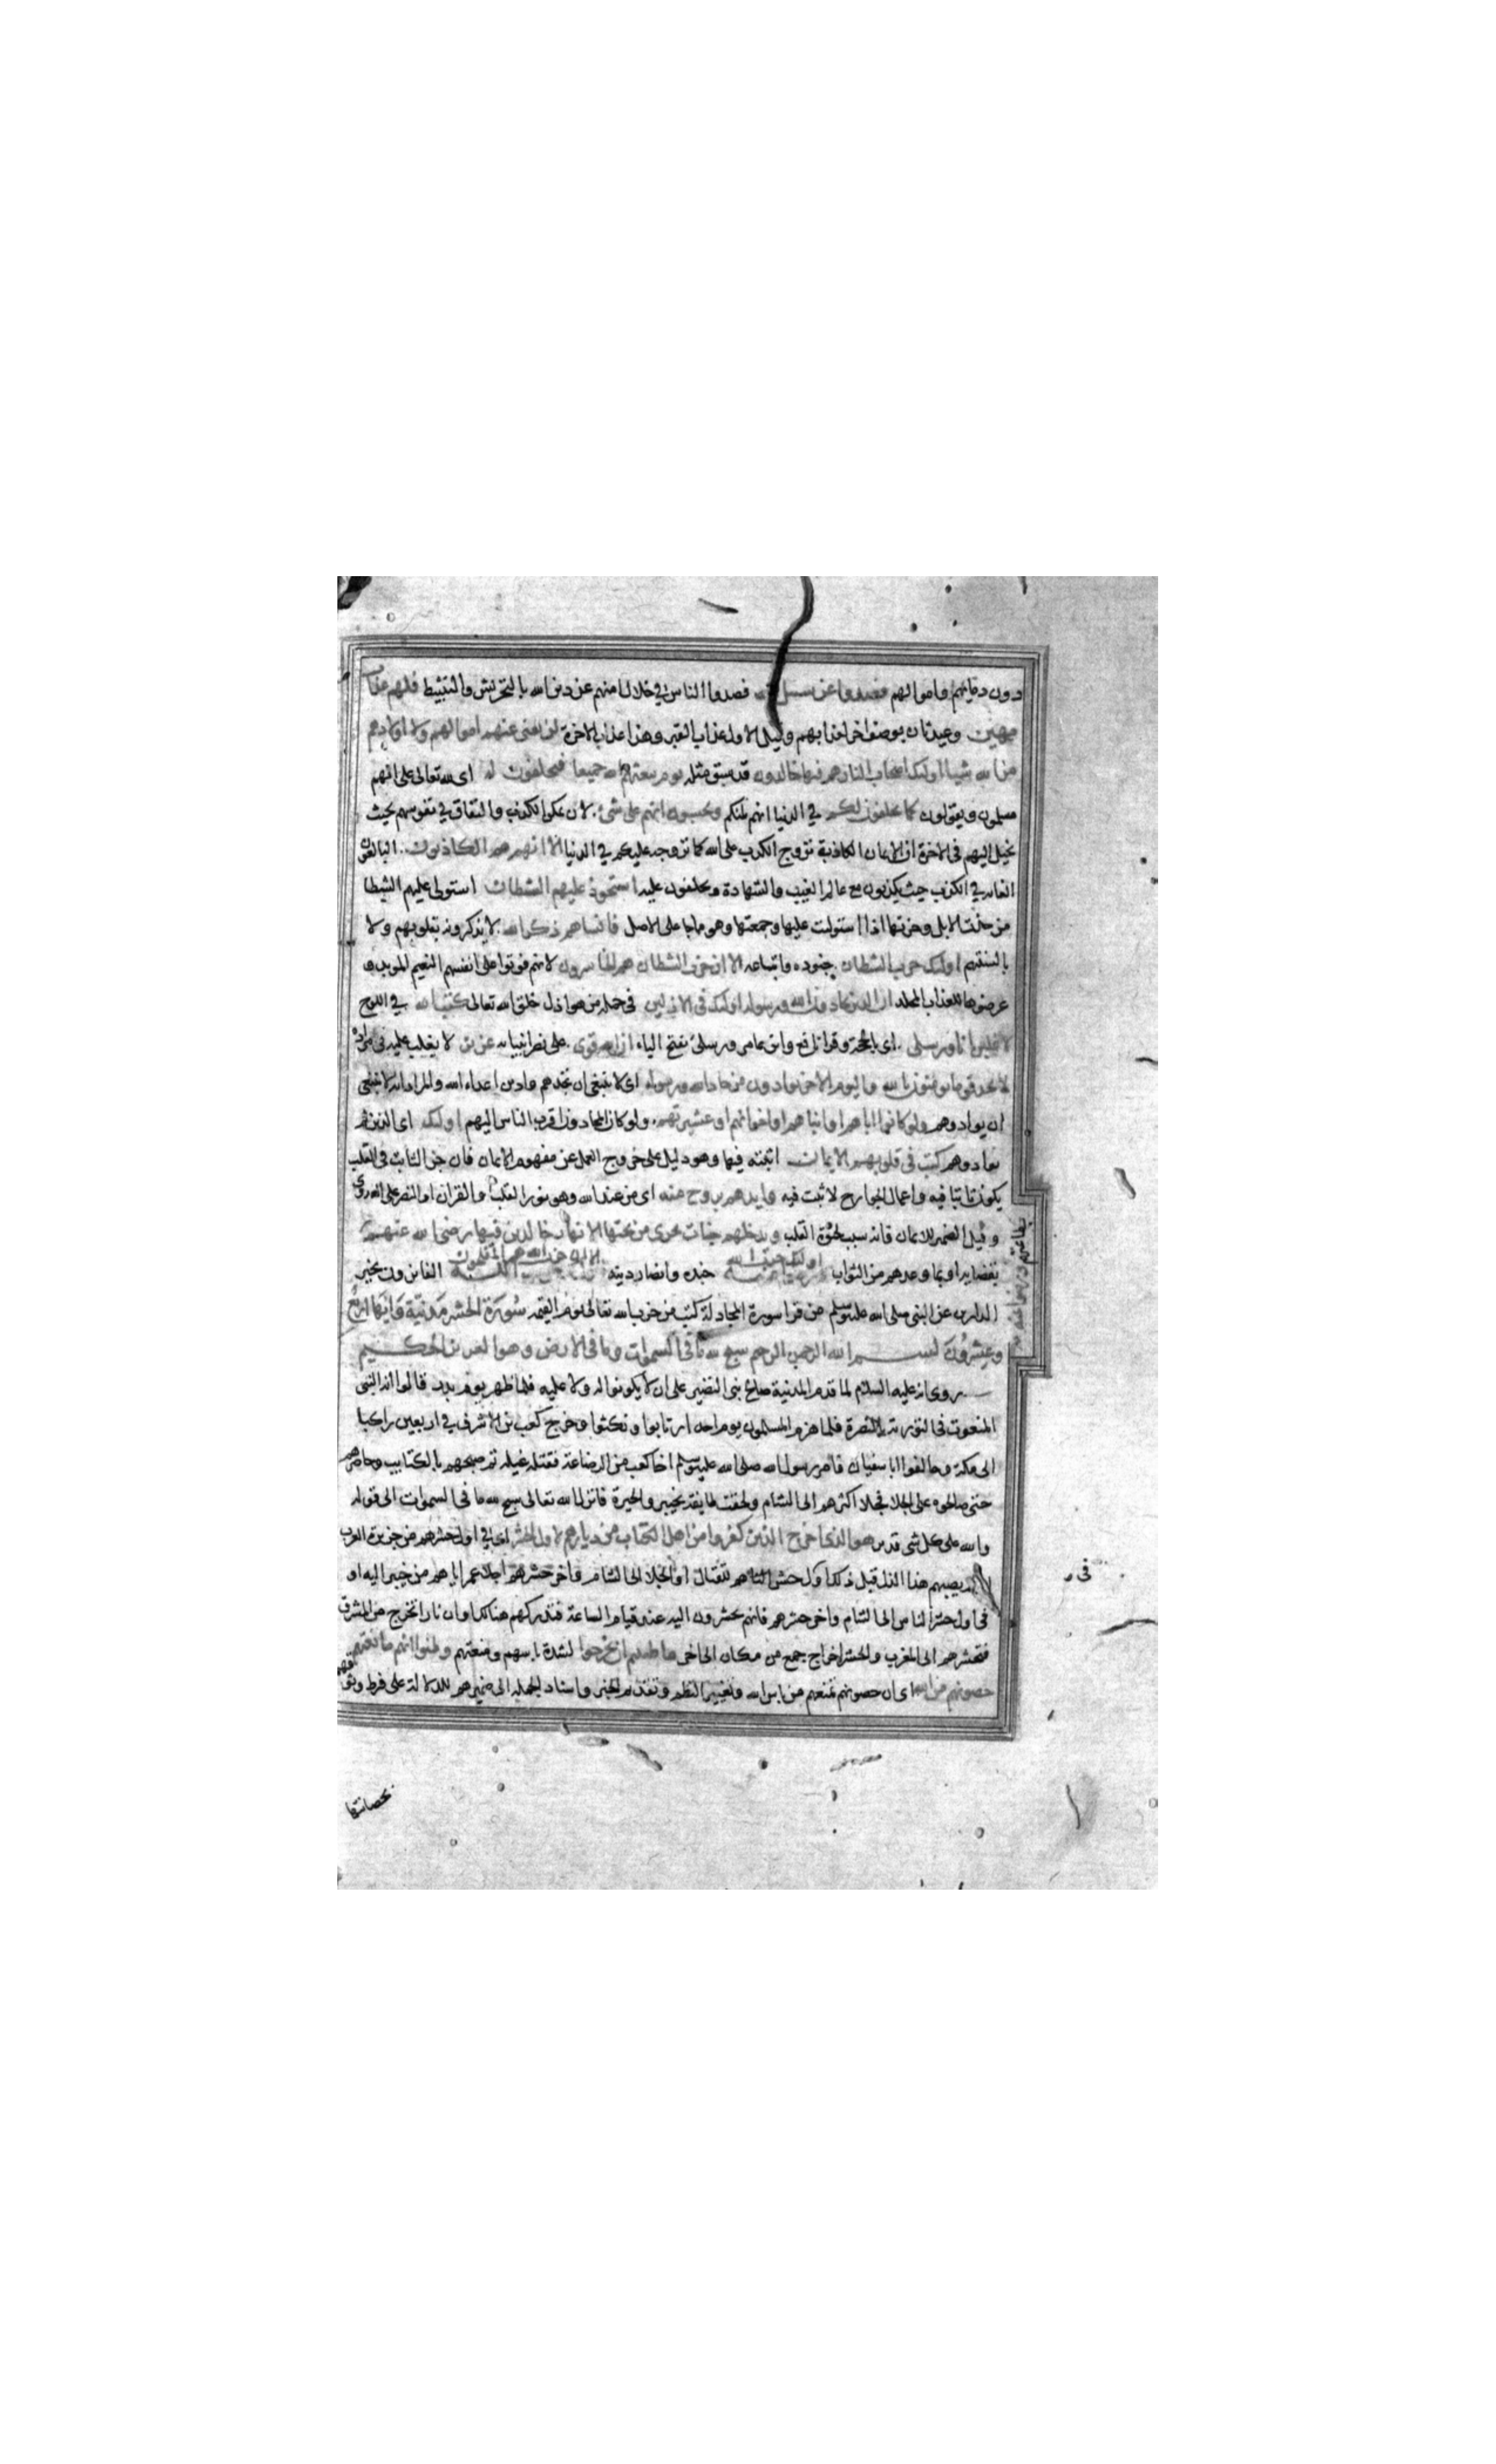 دون دمائهم واموالهم فصدوا عن سبيل الله فصدوا الناس في خلال امنهم عن دين الله بالتحريش والتثبيط فلهم عذاب
مهين وعيد ثان بوصف اخر لعذابهم وقيل الاول عذاب القبر وهذا عذاب الاخرة لن تغنى عنهم اموالهم ولا اولادهم
من الله شيا اولئك اصحاب النار هم فيها خالدون قد سبق مثله يوم يبعثهم الله جميعا فيحلفون له اى لله تعالى على انهم
مسلمون ويقولون كما يحلفون لكم في الدنيا انهم لمنكم ويحسبون انهم على شئ لان تمكن الكذب والنفاق في نفوسهم بحيث
يخيل اليهم فى الاخرة ان الايمان الكاذبة تروج الكذب على الله كما تروجه عليكم في الدنيا الا انهم هم الكاذبون البالغون
الغاية في الكذب حيث يكذبون مع عالم الغيب والشهادة ويحلفون عليه استحوذ عليهم الشطان استولى عليهم الشيطا
من حذت الابل وحزتها اذا استولت عليها وجمعتها وهو ما جا على الاصل فانساهم ذكر الله لا يذكرونه بقلوبهم ولا
بالسنتهم اولئك حزب الشطان جنوده واتباعه الا ان حزب الشطان هم الخاسرون لانهم فوتوا على انفسهم النعيم الموبد و
عرضوها للعذاب المخلد ان الذين يحادون الله ورسوله اولئك فى الاذلين فى جملة من هو اذل خلق الله تعالى كتب الله في اللوح
لاغلبن انا ورسلى اى بالحجة وقرا نافع وابن عامر ورسلى بفتح الياء ان الله قوى على نصر انبيائه عزيز لا يغلب عليه فى مراده
لا تجد قوما يومنون بالله واليوم الاخر يوادون من حاد الله ورسوله اى لا ينبغى ان تجدهم وادين اعداء الله والمراد انه لا ينبغى
ان يوادوهم ولو كانوا اباهم او ابناهم او اخوانهم او عشيرتهم ولو كان المحادون اقرب الناس اليهم اولئك اى الذين لم
يوادوهم كتب فى قلوبهم الايمان اثبته فيها وهو دليل على خروج العمل عن مفهوم الايمان فان جزا الثابت فى القلب
يكون ثابتا فيه واعمال الجوارح لا تثبت فيه وايدهم بروح منه اى من عند الله وهو نور القلب او القران او النصر على العدو
وقيل الضمير للايمان فانه سبب لحيوة القلب ويدخلهم جنات تجرى من تحتها الانهار خالدين فيها رضى الله عنهم
بطاعتهم ورضوا عنه
بقضايه او بما وعدهم من الثواب اولئك حزب الله جنده وانصار دينه الا ان حزب الله هم المفلحون الفائزون بخير
الدارين عن النبى صلى الله عليه وسلم من قرا سورة المجادلة كتب من حزب الله تعالى يوم القيمه سورة الحشر مدنية وايها اربع
وعشرون بسم الله الرحمن الرحيم سبح لله ما فى السموات وما فى الارض وهو العزيز الحكيم
روى انه عليه السلام لما قدم المدنية صالح بنى النضير على ان لا يكونوا له ولا عليه فلما ظهر يوم بدر قالوا انه النبى
المنعوت فى التورية بالنصرة فلما هزم المسلمون يوم احد ارتابوا ونكثوا وخرج كعب بن الاشرف في اربعين راكبا
الى مكة وحالفوا ابا سفيان فامر رسول الله صلى الله عليه وسلم اخا كعب من الرضاعة فقتله غيلة ثم صبحهم بالكتايب وحاصرهم
حتى صالحوه على الجلا فجلا اكثرهم الى الشام ولحقت طايفة بخيبر والحيرة فانزل الله تعالى سبح لله ما فى السموات الى قوله
والله على كل شى قدير هو الذى اخرج الذين كفروا من اهل الكتاب من ديارهم لاول الحشر اى في اول حشرهم من جزيرة العرب
لم يصبهم هذا الذل قبل ذلك او ل حشرهم للقتال او الجلا الى الشام واخر حشرهم اجلا عمر اياهم من خيبر اليه او
فى اول حشر الناس الى الشام واخر حشرهم فانهم يحشرون اليه عند قيام الساعة فتدركهم هنالك او ان نارا تخرج من المشرق
فتحشرهم الى المغرب والحشر اخراج جمع من مكان الى اخر ما ظننتم ان يخرجوا لشدة باسهم ومنعتهم وظنوا انهم مانعتهم
حصونهم من الله اى ان حصونهم تمنعهم من باس الله وتغيير النظم وتقديم الخبر واسناد الجملة الى ضميرهم للدلالة على فرط وثوقهم
بحصانتها